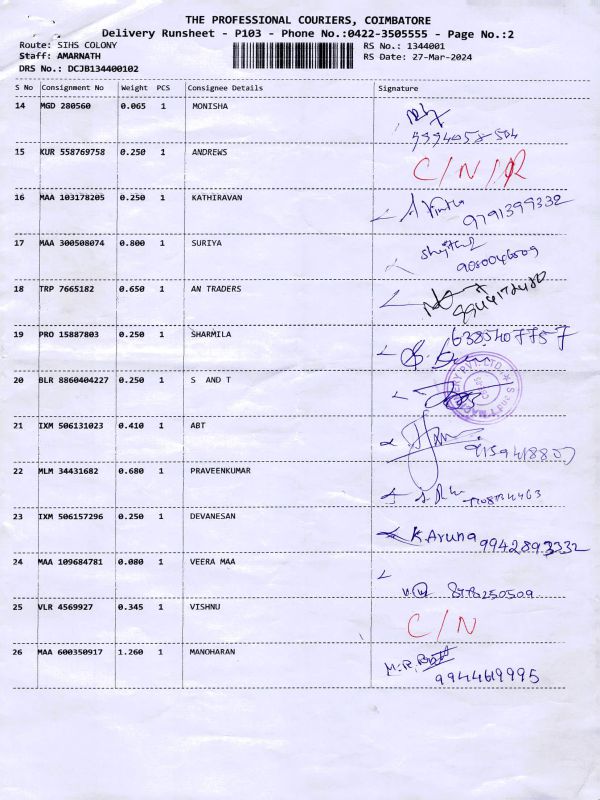 THE PROFESSIONAL COURIERS, COIMBATORE
Delivery Runsheet - P103 - Phone No.:0422-3505555 - Page No.:2
Route: SIHS COLONY RS No.: 1344001
Staff: AMARNATH RS Date: 27-Mar-2024
DRS No.: DCJB134400102
S No Consignment No Weight PCS Consignee Details Signature
14 MGD 280560 0.065 1 MONISHA
15 KUR 558769758 0.250 1 ANDREWS C/N/R
16 MAA 103178205 0.250 1 KATHIRAVAN
9791399332
17 MAA 300508074 0.800 1 SURIYA
9080046509
18 TRP 7665182 0.650 1 AN TRADERS
19 PRO 15887803 0.250 1 SHARMILA 6385407757
20 BLR 8860404227 0.250 1 S AND T
21 IXM 506131023 0.410 1 ABT
9159418807
22 MLM 34431682 0.680 1 PRAVEENKUMAR
23 IXM 506157296 0.250 1 DEVANESAN K Aruna 9942893332
24 MAA 109684781 0.080 1 VEERA MAA
25 VLR 4569927 0.345 1 VISHNU C/N
26 MAA 600350917 1.260 1 MANOHARAN
9944619995